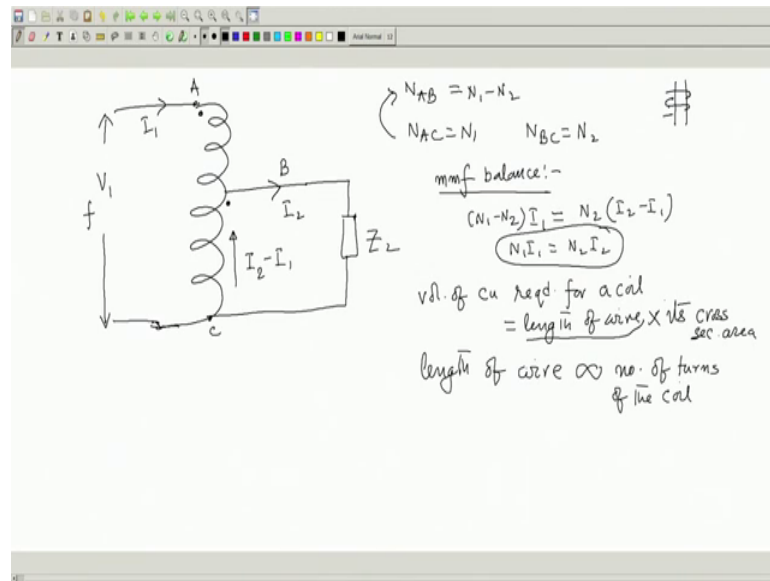 Arial Normal 12
A
I₁
V₁
f
B
I₂
I₂-I₁
Z₂
C
N_AB = N₁-N₂
N_AC = N₁ N_BC = N₂
mmf balance:-
(N₁-N₂)I₁ = N₂(I₂-I₁)
N₁I₁ = N₂I₂
vol. of cu reqd. for a coil
= length of wire × its cross
sec. area
length of wire ∝ no. of turns
of the coil